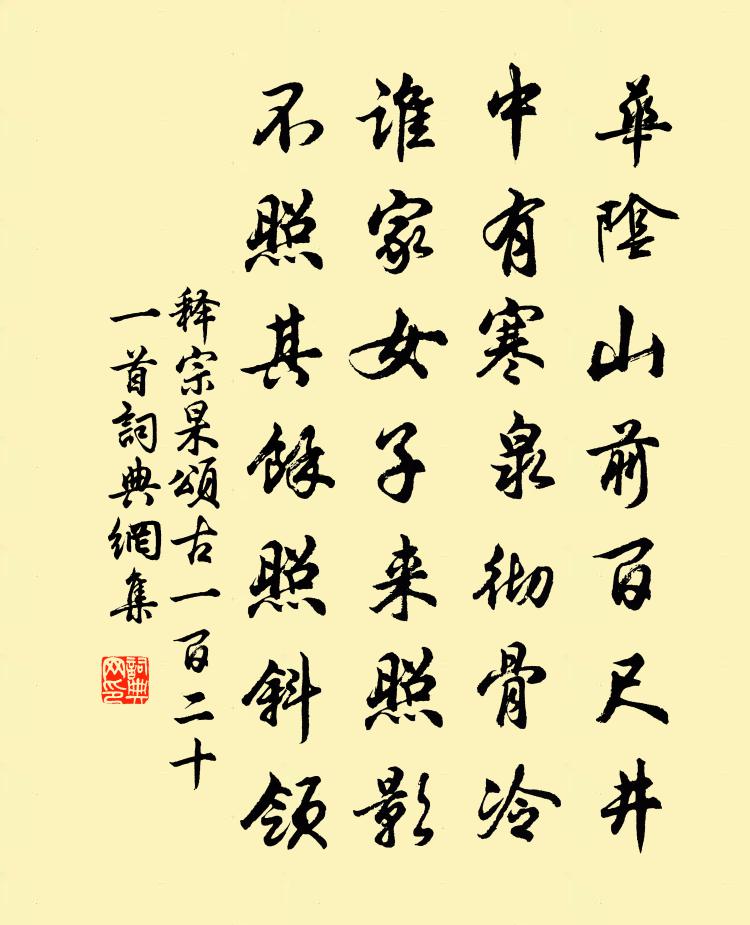 華陰山前百尺井
中有寒泉彻骨冷
誰家女子来照影
不照其餘照斜領
释宗杲頌古一百二十
一首詞典網集
詞典网印